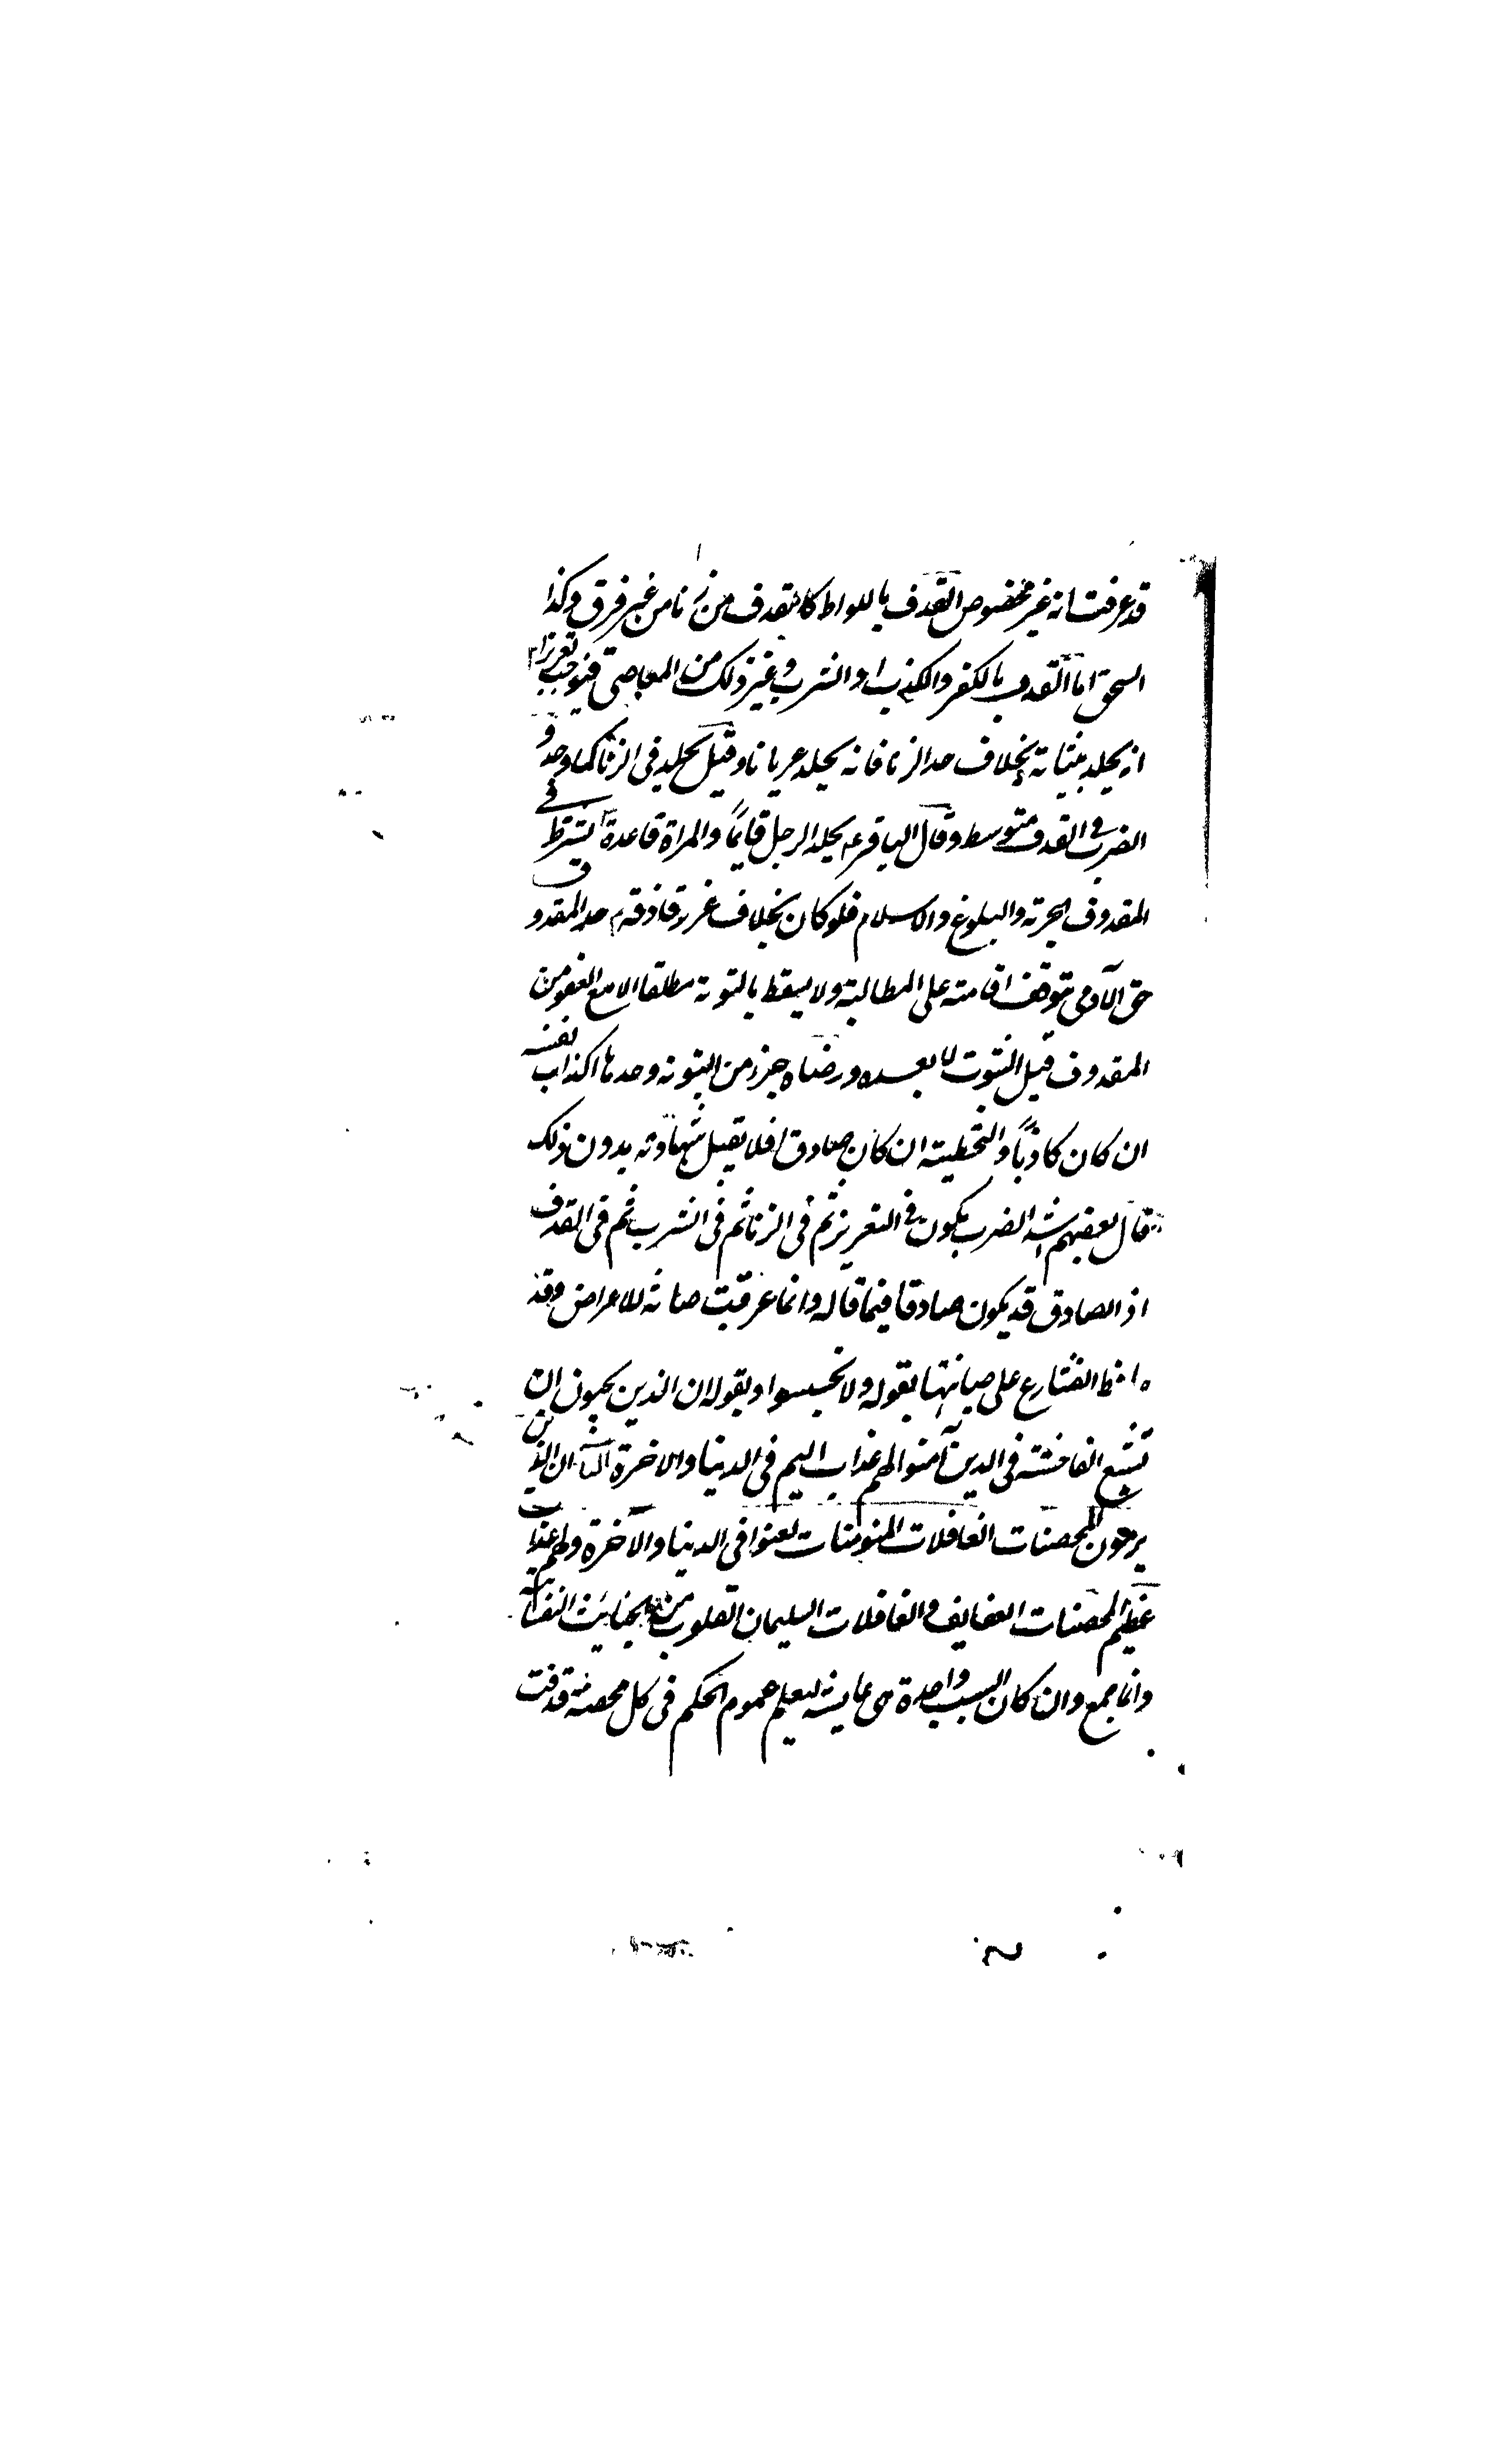 قد عرفت انه غير مخصوص القذف باللواط كالقذف من زنا من غير فرق وكذا
السحق اما القذف بالكفر والكذب او الشرب وغير ذلك من المعاصي فيوجب تعزيرا
انه يجلد بثيابه بخلاف حد الزنا فانه يجلد عريانا وقيل يجلد في الزنا كما وجد و
الضرب في القذف متوسط وقال الباقر ع يجلد الرجل قايماً والمراة قاعدة يشترط في
المقذوف الحرية والبلوغ والاسلام فلو كان بخلاف عزر قاذفه حد المقذوف
حق الآدمي يتوقف اقامته على المطالبة ولا يسقط بالتوبة مطلقا الا مع العفو من
المقذوف قبل الثبوت لا بعده ورضاه جزء من التوبة وحدها اكذاب نفسه
ان كان كاذباً والتخطية ان كان صادقا فلا تقبل شهادته بدون ذلك
قال بعضهم اشد الضرب يكون في التعزير ثم في الزنا ثم في الشرب ثم في القذف
اذ الصادق قد يكون صادقا فيما قاله وانما عوقب صيانة للاعراض وقد
الشارع على صيانتها بقوله ولا تجسسوا وبقوله ان الذين يحبون ان
تشيع الفاحشة في الذين آمنوا لهم عذاب اليم في الدنيا والاخرة ان الذين
يرمون المحصنات الغافلات المؤمنات لعنوا في الدنيا والآخرة ولهم عذاب
عظيم المحصنات العفايف والغافلات السليمات القلوب من
وانما جمع وان كان السبب واحدة هي عايشه ليعلم عموم الحكم في كل محصنة قذفت